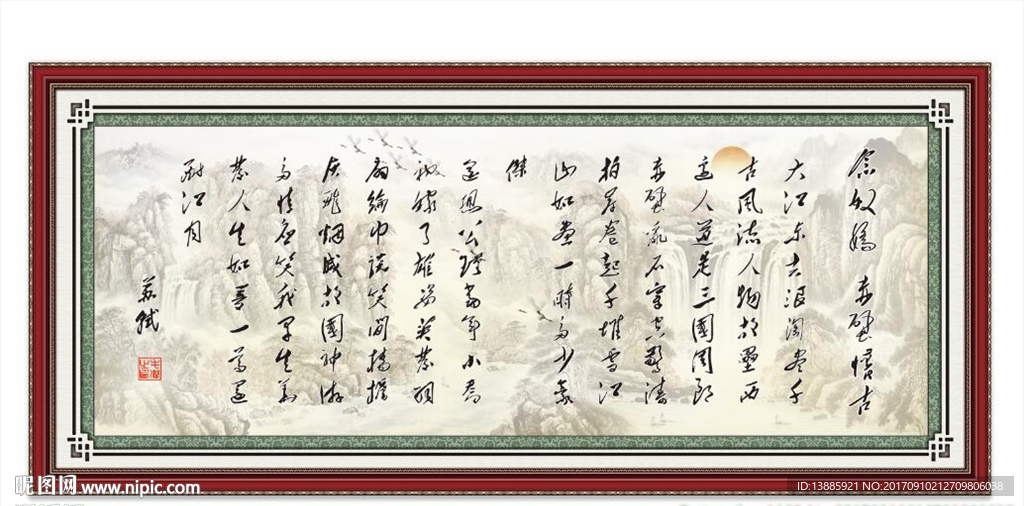 念奴嬌 赤壁懷古
大江东去浪淘尽千
古風流人物故壘西
邊人道是三國周郎
赤壁亂石穿空驚濤
拍岸卷起千堆雪江
山如畫一時多少豪
傑
遙想公瑾當年小喬
初嫁了雄姿英發羽
扇綸巾談笑間檣櫓
灰飛烟滅故國神游
多情應笑我早生華
發人生如夢一尊還
酹江月
蘇軾
昵图网 www.nipic.com
ID:13885921 NO:20170910212709806038